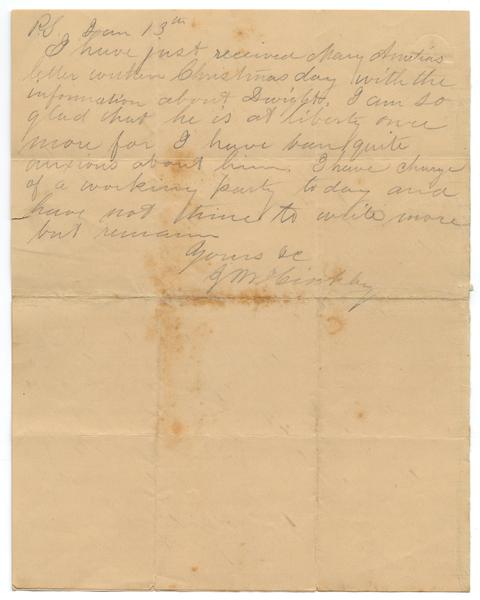 P.S. Jan 13th
I have just received Mary
letter writen Christmas day with the
information about Dwight. I am so
glad that he is at liberty once
more for I have ban quite
anxious about him. I have charge
of a working party today and
have not thime to write more
but remain
Yours &c
J M Hinkley